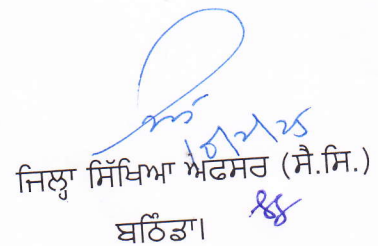 ਜਿਲ੍ਹਾ ਸਿੱਖਿਆ ਅਫਸਰ (ਸੈ.ਸਿ.)
ਬਠਿੰਡਾ।